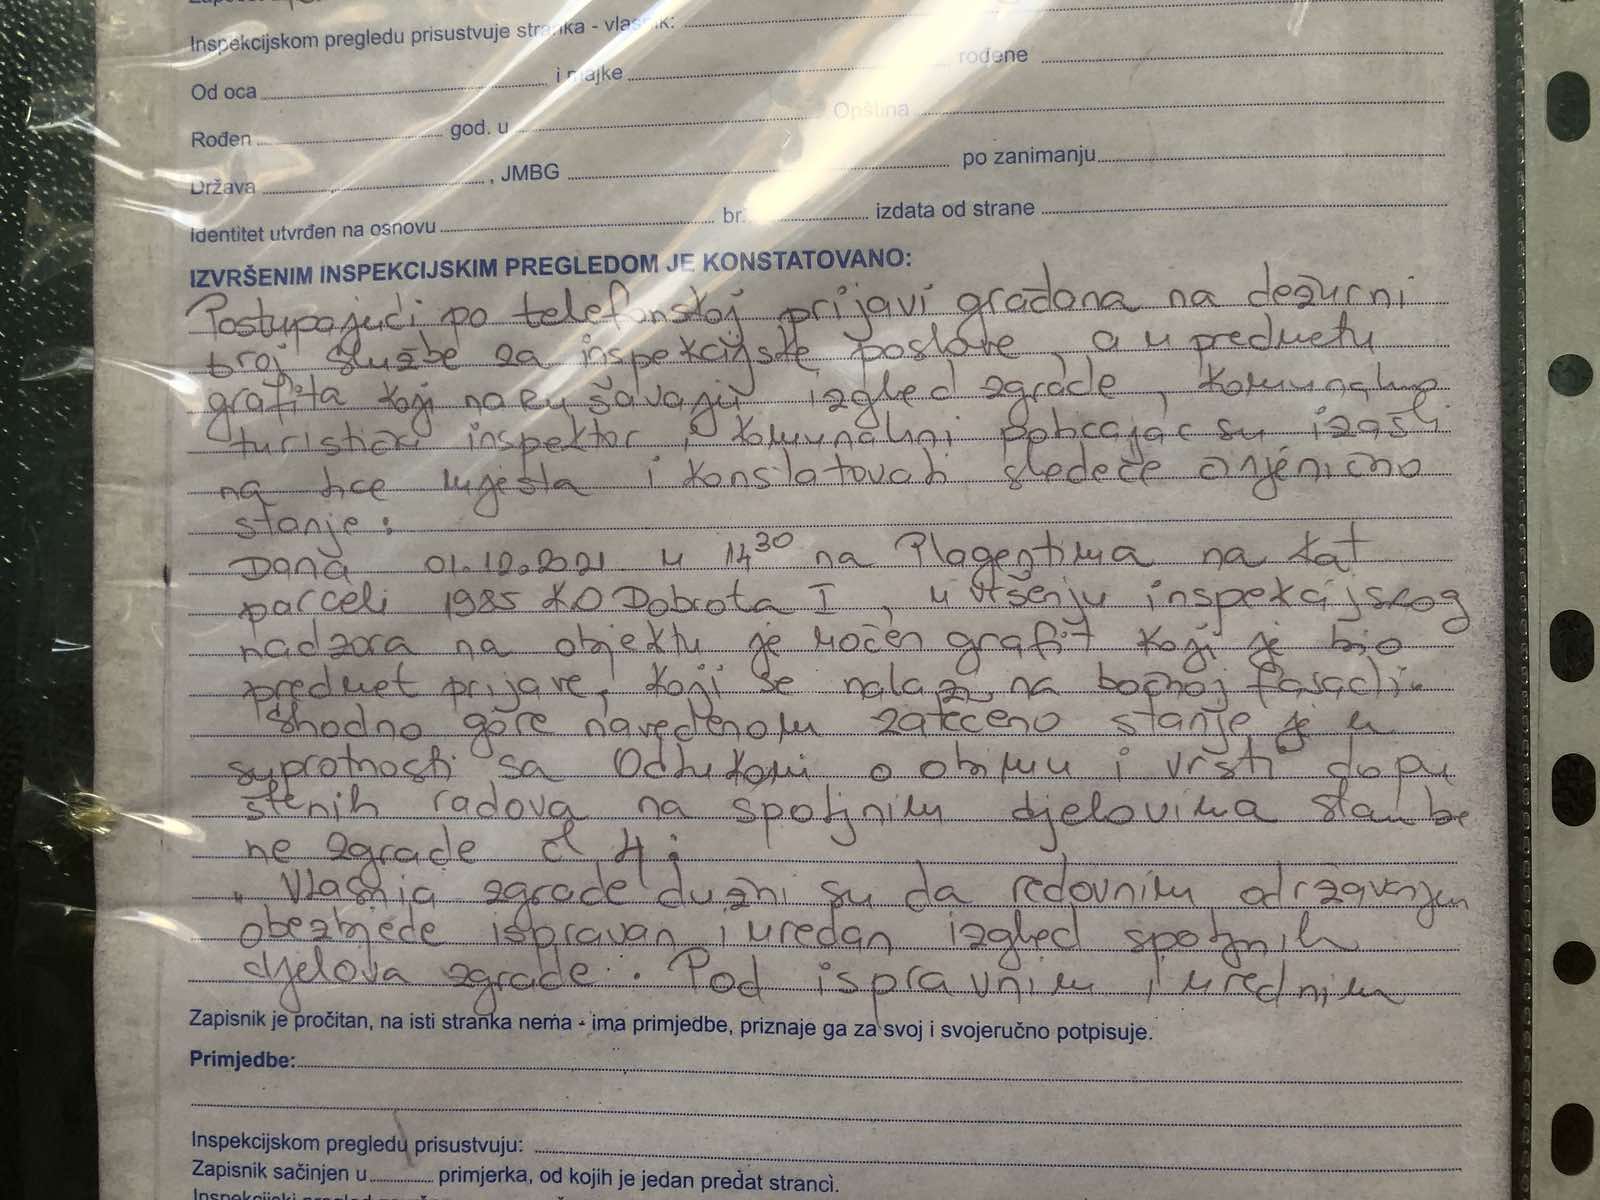 Inspekcijskom pregledu prisustvuje stranka - vlasnik:
Od oca i majke rođene
Rođen god. u Opština
Država , JMBG po zanimanju
Identitet utvrđen na osnovu br. izdata od strane
IZVRŠENIM INSPEKCIJSKIM PREGLEDOM JE KONSTATOVANO:
Postupajući po telefonskoj prijavi građana na dežurni
broj službe za inspekcijske poslove, a u predmetu
grafita koji narušavaju izgled zgrade, komunalno
turistički inspektor, komunalni policajac su izašli
na lice mjesta i konstatovali sledeće činjenično
stanje:
Dana 01.12.2021 u 14 30 na Plagentima na kat
parceli 1985 KO Dobrota I, u vršenju inspekcijskog
nadzora na objektu je uočen grafit koji je bio
predmet prijave, koji se nalazi na bočnoj fasadi.
Shodno gore navedenom zatečeno stanje je u
suprotnosti sa Odlukom o obimu i vrsti dopu
štenih radova na spoljnim djelovima stambe
ne zgrade čl. 4:
"Vlasnici zgrade dužni su da redovnim održavanjem
obezbjede ispravan i uredan izgled spoljnih
djelova zgrade. Pod ispravnim i urednim
Zapisnik je pročitan, na isti stranka nema - ima primjedbe, priznaje ga za svoj i svojeručno potpisuje.
Primjedbe:
Inspekcijskom pregledu prisustvuju:
Zapisnik sačinjen u primjerka, od kojih je jedan predat stranci.